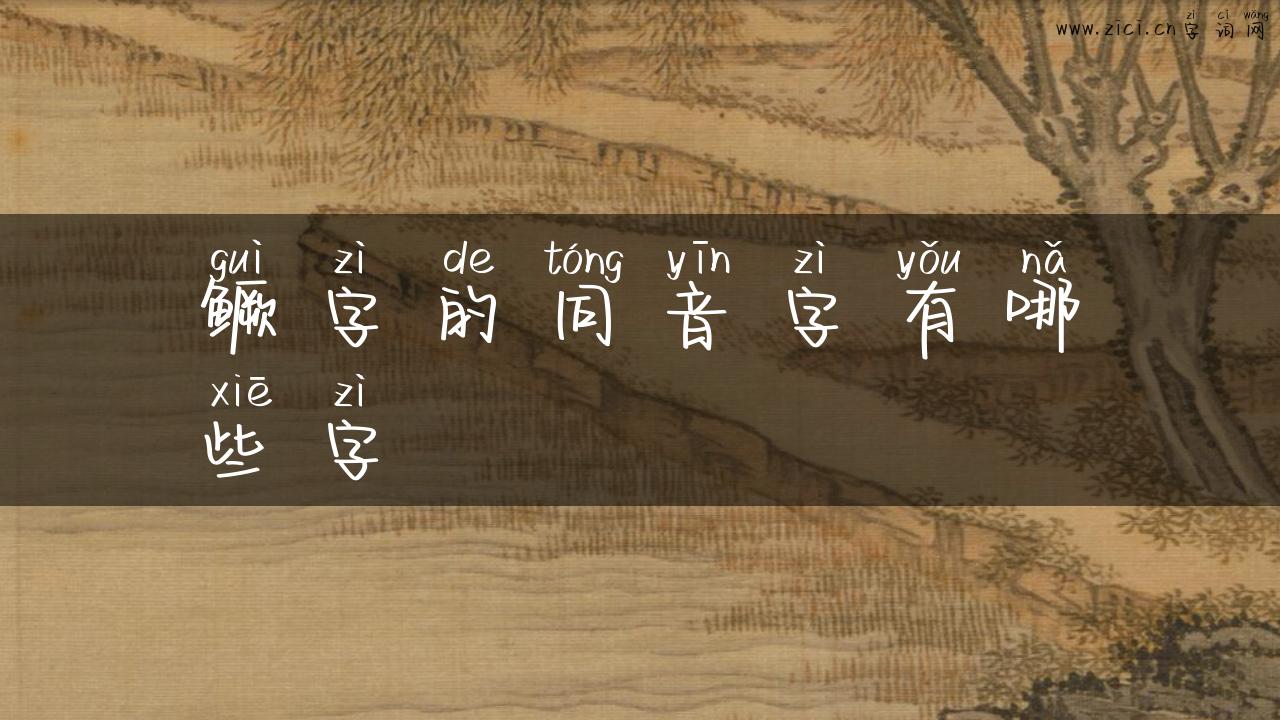 zì cí wǎng
www.zici.cn字词网
guì zì de tóng yīn zì yǒu nǎ
鳜字的同音字有哪
xiē zì
些字